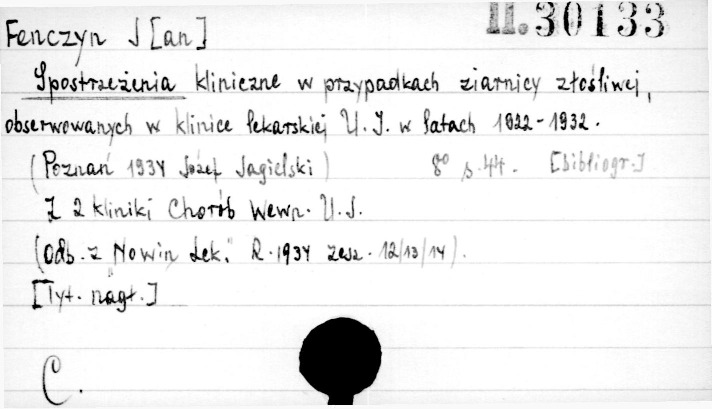 Fenczyn J[an]
II.30133
Spostrzeżenia kliniczne w przypadkach ziarnicy złośliwej,
obserwowanych w klinice lekarskiej U.J. w latach 1922-1932.
(Poznań 1934 Józef Jagielski) 8° s.44. [bibliogr.]
Z 2 kliniki Chorób Wewn. U.J.
(Odb. z "Nowin Lek." R.1934 zesz. 12/13/14).
[Tyt. nagł.]
C.